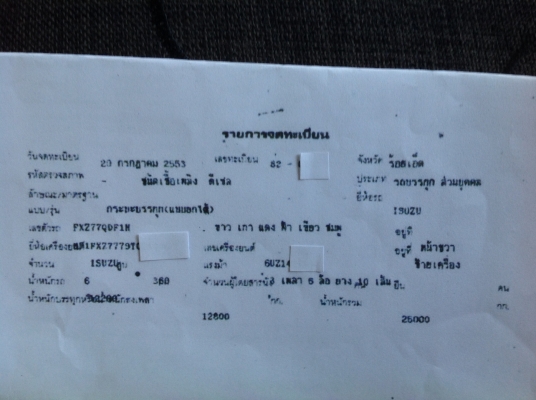 รายการจดทะเบียน
วันจดทะเบียน 20 กรกฎาคม 2553 เลขทะเบียน 82 - จังหวัด ร้อยเอ็ด
รหัสตรวจสภาพ - ชนิดเชื้อเพลิง ดีเซล ประเภท รถบรรทุก ส่วนบุคคล
ลักษณะ/มาตรฐาน ยี่ห้อรถ
แบบ/รุ่น กระบะบรรทุก(แบบยกได้) ISUZU
เลขตัวรถ FXZ77QDF1H ขาว เทา แดง ฟ้า เขียว ชมพู อยู่ที่
ยี่ห้อเครื่องยนต์ เลขเครื่องยนต์ อยู่ที่ หน้าขวา
จำนวน ISUZU สูบ แรงม้า 6UZ1 ซ้ายเครื่อง
น้ำหนักรถ 6 360 จำนวนผู้โดยสาร 3 เพลา 6 ล้อ ยาง 10 เส้น ยืน คน
กก. น้ำหนักรวม กก.
12800 25000